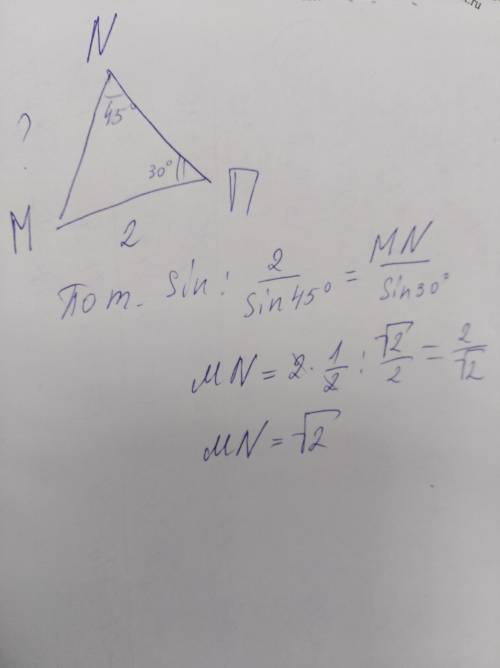 N
45°
?
30°
П
M
2
По т. sin: 2/sin45° = MN/sin30°
MN = 2 · 1/2 : √2/2 = 2/√2
MN = √2